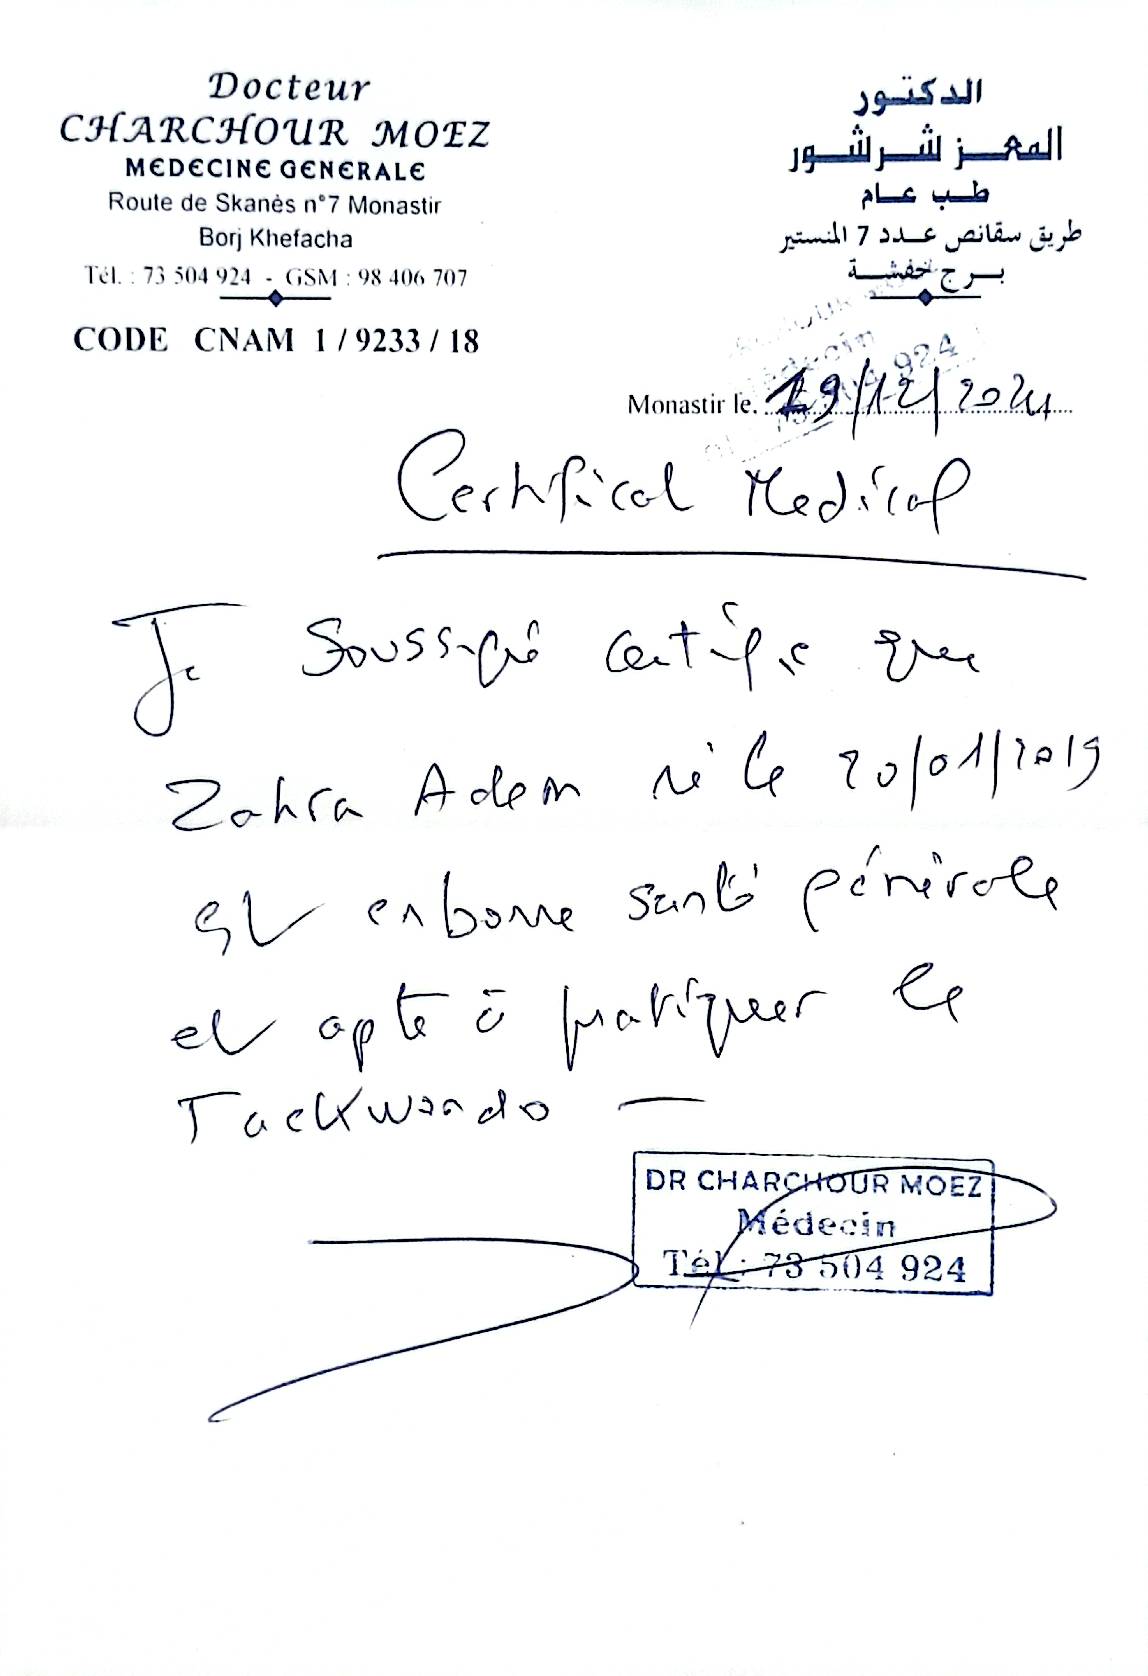 Docteur
CHARCHOUR MOEZ
MEDECINE GENERALE
Route de Skanès n°7 Monastir
Borj Khefacha
Tél. : 73 504 924 - GSM : 98 406 707
CODE CNAM 1 / 9233 / 18
الدكتور
المعز شرشور
طب عام
طريق سقانص عدد 7 المنستير
برج خفشة
Médecin
924
Monastir le. 19/12/2024
Certifical Medical
Je Soussigné certifie que
Zahra Adem né le 20/01/2019
est en bonne santé générale
et apte à pratiquer le
Taekwando —
DR CHARCHOUR MOEZ
Médecin
Tél : 73 504 924